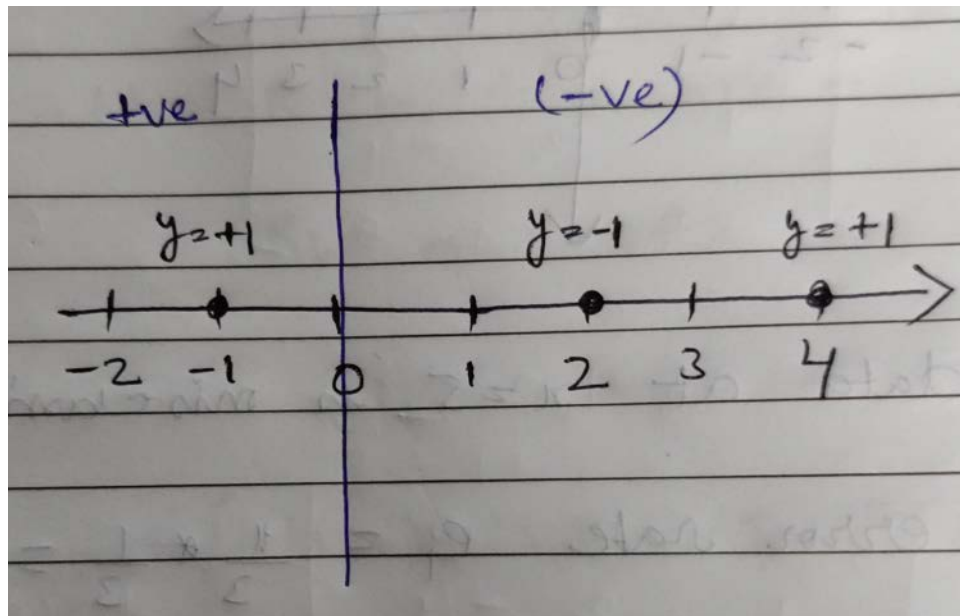 +ve (-ve)
y=+1 y=-1 y=+1
-2 -1 0 1 2 3 4